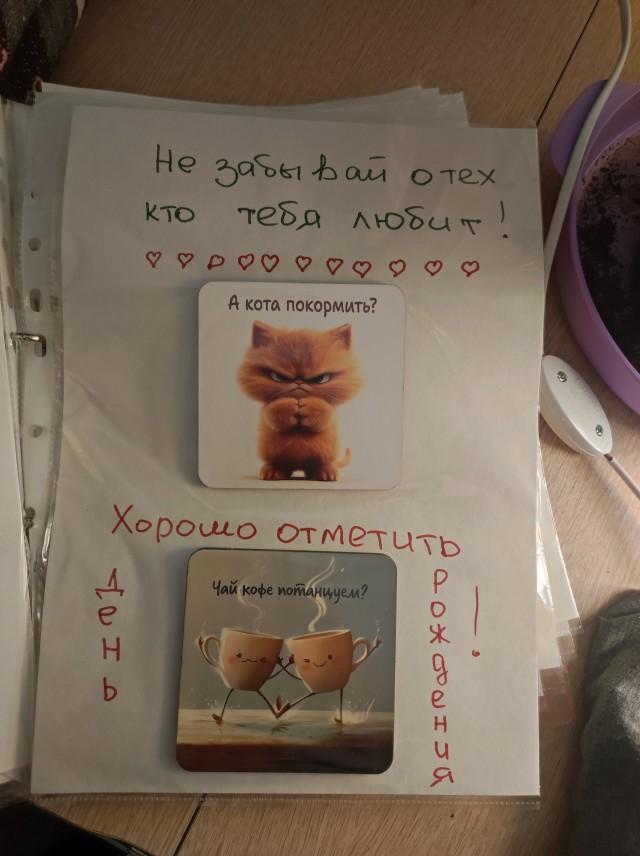 Не забывай о тех
кто тебя любит!
А кота покормить?
Хорошо отметить
день
рождения!
Чай кофе потанцуем?